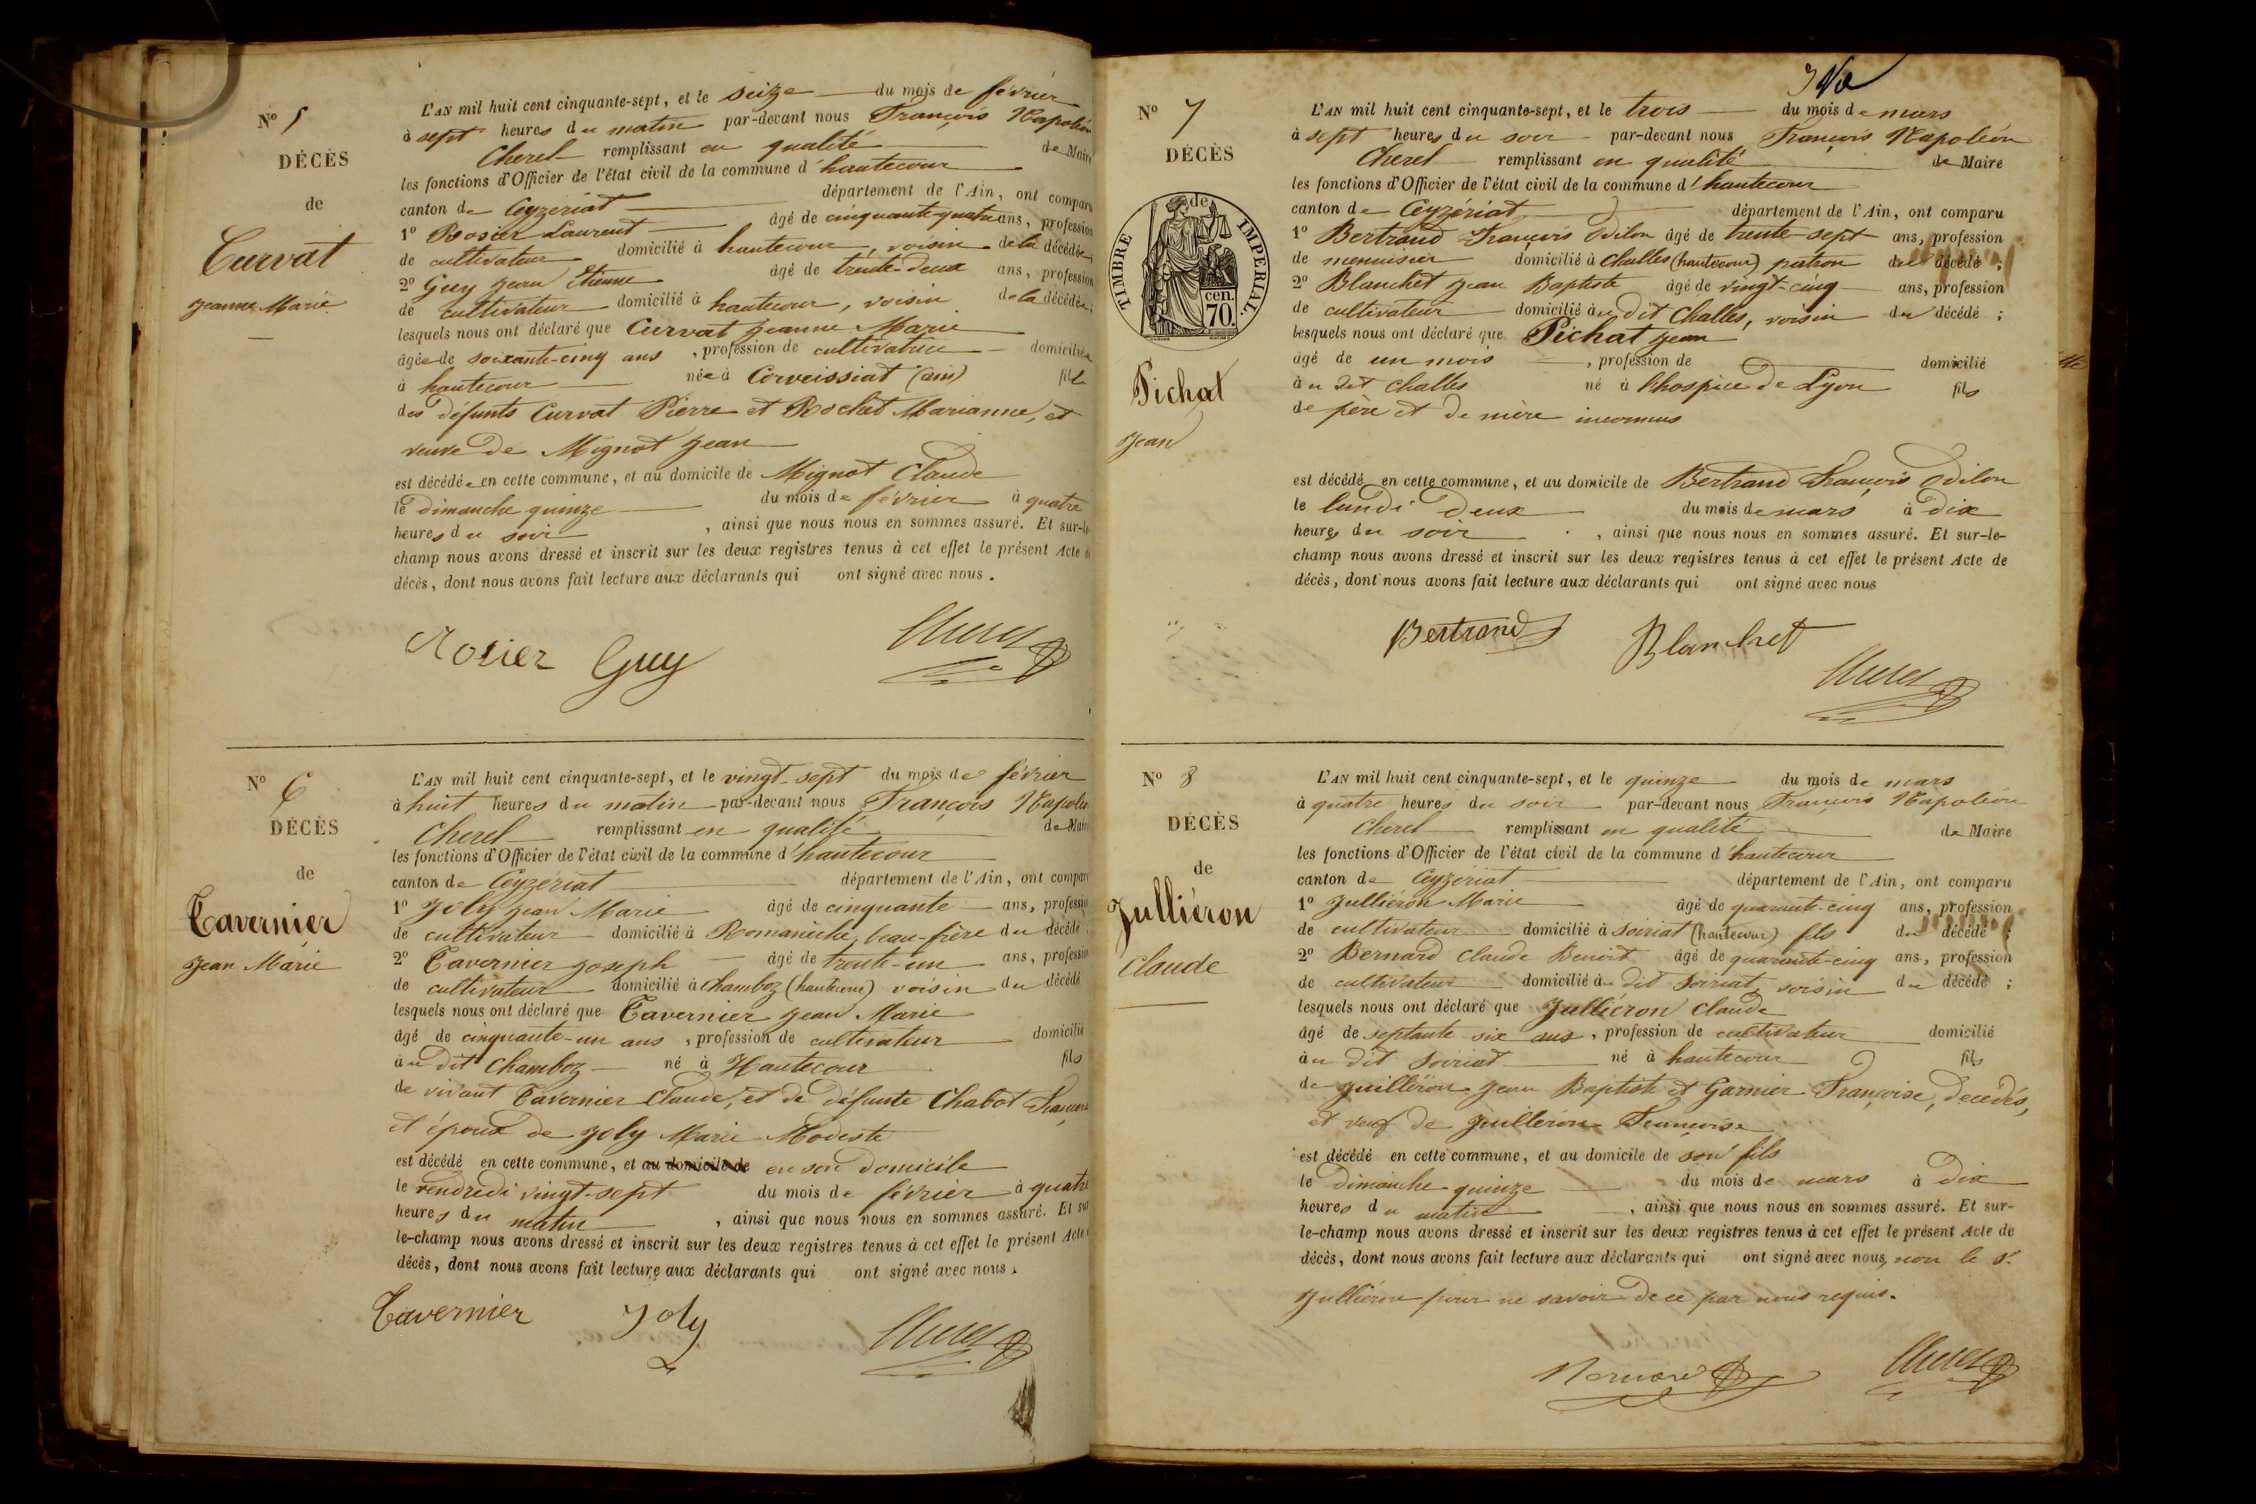 N° 5
DÉCÈS
de
Curvat
Jeanne Marie
L'AN mil huit cent cinquante-sept, et le seize du mois de février
à sept heures du matin par-devant nous François Napoléon
Cherel remplissant en qualité de Maire
les fonctions d'Officier de l'état civil de la commune d'hautecour
canton de Ceyzeriat département de l'Ain, ont comparu
1° Rosier Laurent âgé de cinquante-quatre ans, profession
de cultivateur domicilié à hautecour, voisin de la décédée;
2° Guy Jean Etienne âgé de trente-deux ans, profession
de cultivateur domicilié à hautecour, voisin de la décédée;
lesquels nous ont déclaré que Curvat Jeanne Marie
âgée de soixante-cinq ans, profession de cultivatrice domiciliée
à hautecour née à Corveissiat (ain) fille
des défunts Curvat Pierre et Rochet Marianne, et
veuve de Mignot Jean
est décédée en cette commune, et au domicile de Mignot Claude
le dimanche quinze du mois de février à quatre
heures du soir, ainsi que nous nous en sommes assuré. Et sur-le-
champ nous avons dressé et inscrit sur les deux registres tenus à cet effet le présent Acte de
décès, dont nous avons fait lecture aux déclarants qui ont signé avec nous.
Rosier Guy Cherel
N° 6
DÉCÈS
de
Tavernier
Jean Marie
L'AN mil huit cent cinquante-sept, et le vingt-sept du mois de février
à huit heures du matin par-devant nous François Napoléon
Cherel remplissant en qualité de Maire
les fonctions d'Officier de l'état civil de la commune d'hautecour
canton de Ceyzériat département de l'Ain, ont comparu
1° Joly Jean Marie âgé de cinquante ans, profession
de cultivateur domicilié à Romanèche, beau-frère du décédé
2° Tavernier Joseph âgé de trente-un ans, profession
de cultivateur domicilié à Chamboz (hautecour) voisin du décédé
lesquels nous ont déclaré que Tavernier Jean Marie
âgé de cinquante-un ans, profession de cultivateur domicilié
au dit Chamboz né à Hautecour fils
de vivant Tavernier Claude, et de défunte Chabot
et époux de Joly Marie Modeste
est décédé en cette commune, et au domicile de en son domicile
le vendredi vingt-sept du mois de février à quatre
heures du matin, ainsi que nous nous en sommes assuré. Et sur
le-champ nous avons dressé et inscrit sur les deux registres tenus à cet effet le présent Acte
décès, dont nous avons fait lecture aux déclarants qui ont signé avec nous.
Tavernier Joly Cherel
N° 7
DÉCÈS
de
TIMBRE IMPERIAL.
cen.
70.
Pichat
Jean
L'AN mil huit cent cinquante-sept, et le trois du mois de mars
à sept heures du soir par-devant nous François Napoléon
Cherel remplissant en qualité de Maire
les fonctions d'Officier de l'état civil de la commune d'hautecour
canton de Ceyzériat département de l'Ain, ont comparu
1° Bertrand François Odilon âgé de trente-sept ans, profession
de menuisier domicilié à Challes (hautecour) patron du décédé;
2° Blanchet Jean Baptiste âgé de vingt-cinq ans, profession
de cultivateur domicilié au dit Challes, voisin du décédé;
lesquels nous ont déclaré que Pichat Jean
âgé de un mois, profession de domicilié
au dit Challes né à l'hospice de Lyon fils
de père et de mère inconnus
est décédé en cette commune, et au domicile de Bertrand François Odilon
le lundi deux du mois de mars à dix
heures du soir, ainsi que nous nous en sommes assuré. Et sur-le-
champ nous avons dressé et inscrit sur les deux registres tenus à cet effet le présent Acte de
décès, dont nous avons fait lecture aux déclarants qui ont signé avec nous
Bertrand Blanchet Cherel
N° 8
DÉCÈS
de
Julliéron
Claude
L'AN mil huit cent cinquante-sept, et le quinze du mois de mars
à quatre heures du soir par-devant nous François Napoléon
Cherel remplissant en qualité de Maire
les fonctions d'Officier de l'état civil de la commune d'hautecour
canton de Ceyzériat département de l'Ain, ont comparu
1° Julliéron Marie âgé de quarante-cinq ans, profession
de cultivateur domicilié à Soiriat (hautecour) fils du décédé;
2° Bernard Claude Benoit âgé de quarante-cinq ans, profession
de cultivateur domicilié au dit Soiriat, voisin du décédé;
lesquels nous ont déclaré que Julliéron Claude
âgé de septante-six ans, profession de cultivateur domicilié
au dit Soiriat né à hautecour fils
de Juilléron Jean Baptiste et Garnier Françoise, décédés,
et veuf de Juilléron Françoise
est décédé en cette commune, et au domicile de son fils
le dimanche quinze du mois de mars à dix
heures du matin, ainsi que nous nous en sommes assuré. Et sur-
le-champ nous avons dressé et inscrit sur les deux registres tenus à cet effet le présent Acte de
décès, dont nous avons fait lecture aux déclarants qui ont signé avec nous, non le sr
Julliéron pour ne savoir de ce par nous requis.
Bernard Cherel